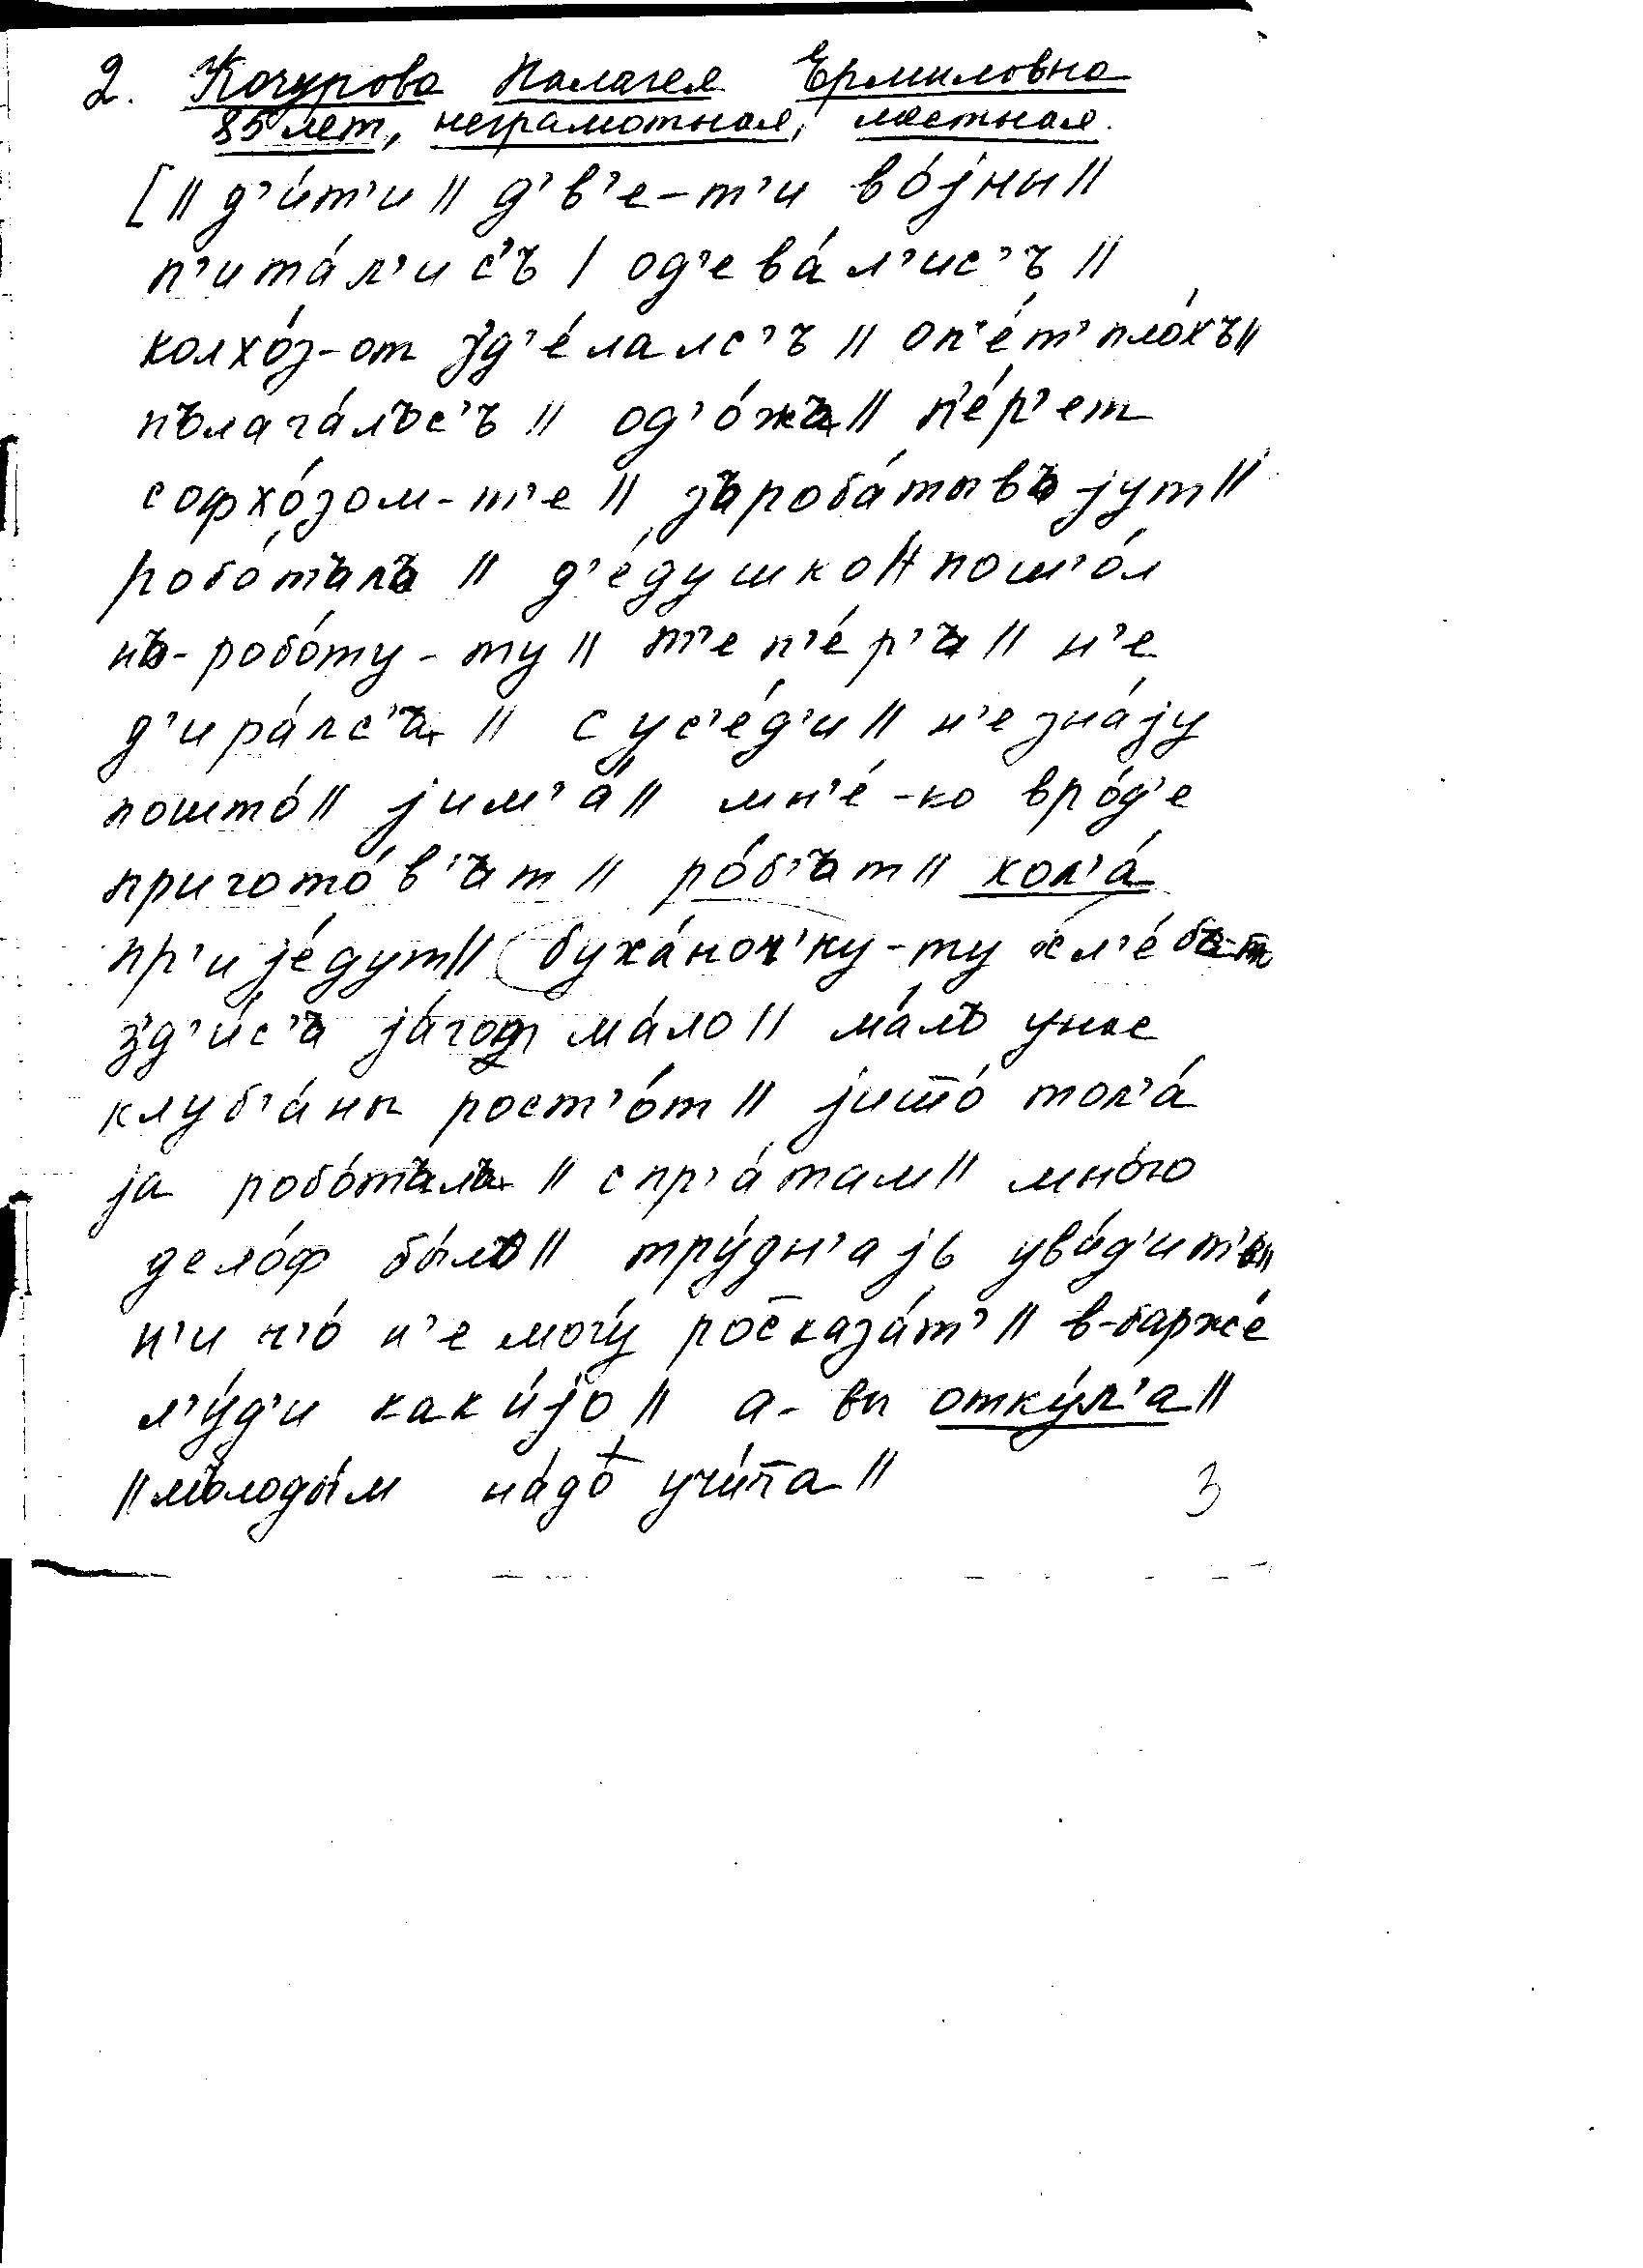 2. Кочурова Палагея Ермиловна
85 лет, неграмотная, местная.
[ || д'и́т'и || д'в'е-т'и во́jны ||
п'ита́л'ис'ъ | од'ева́л'ис'ъ ||
колхо́з-от зд'е́лалс'ъ || оп'е́т' пло́хъ ||
пълага́лъс'ъ || од'о́жъ || п'е́р'ет
софхо́зом-т'е || зъроба́тывъjут ||
робо́тълъ || д'е́душко || пош'о́л
нъ-робо́ту-ту || т'еп'е́р'ъ || н'е
д'ира́лс'ъ || сус'е́д'и || н'е зна́jу
пошто́ || jим'а́ || мн'е́-ко вро́д'е
пригото́в'ът || ро́б'ът || кол'а́
пр'иjе́дут || буха́ноч'ку-ту хл'е́бъ-т
зд'и́с'ъ jа́год ма́ло || ма́лъ у нас
клуб'а́ны рост'о́т || jишто́ тол'а́
jа робо́тълъ || спр'а́там || мно́го
дело́ф бы́лъ || тру́дн'аjь уви́д'ит'ь ||
н'ич'о́ н'е могу́ росказа́т' || в-барже́
л'у́д'и каки́jо || а-вы отку́л'а ||
|| мълоды́м на́до учи́та ||
3